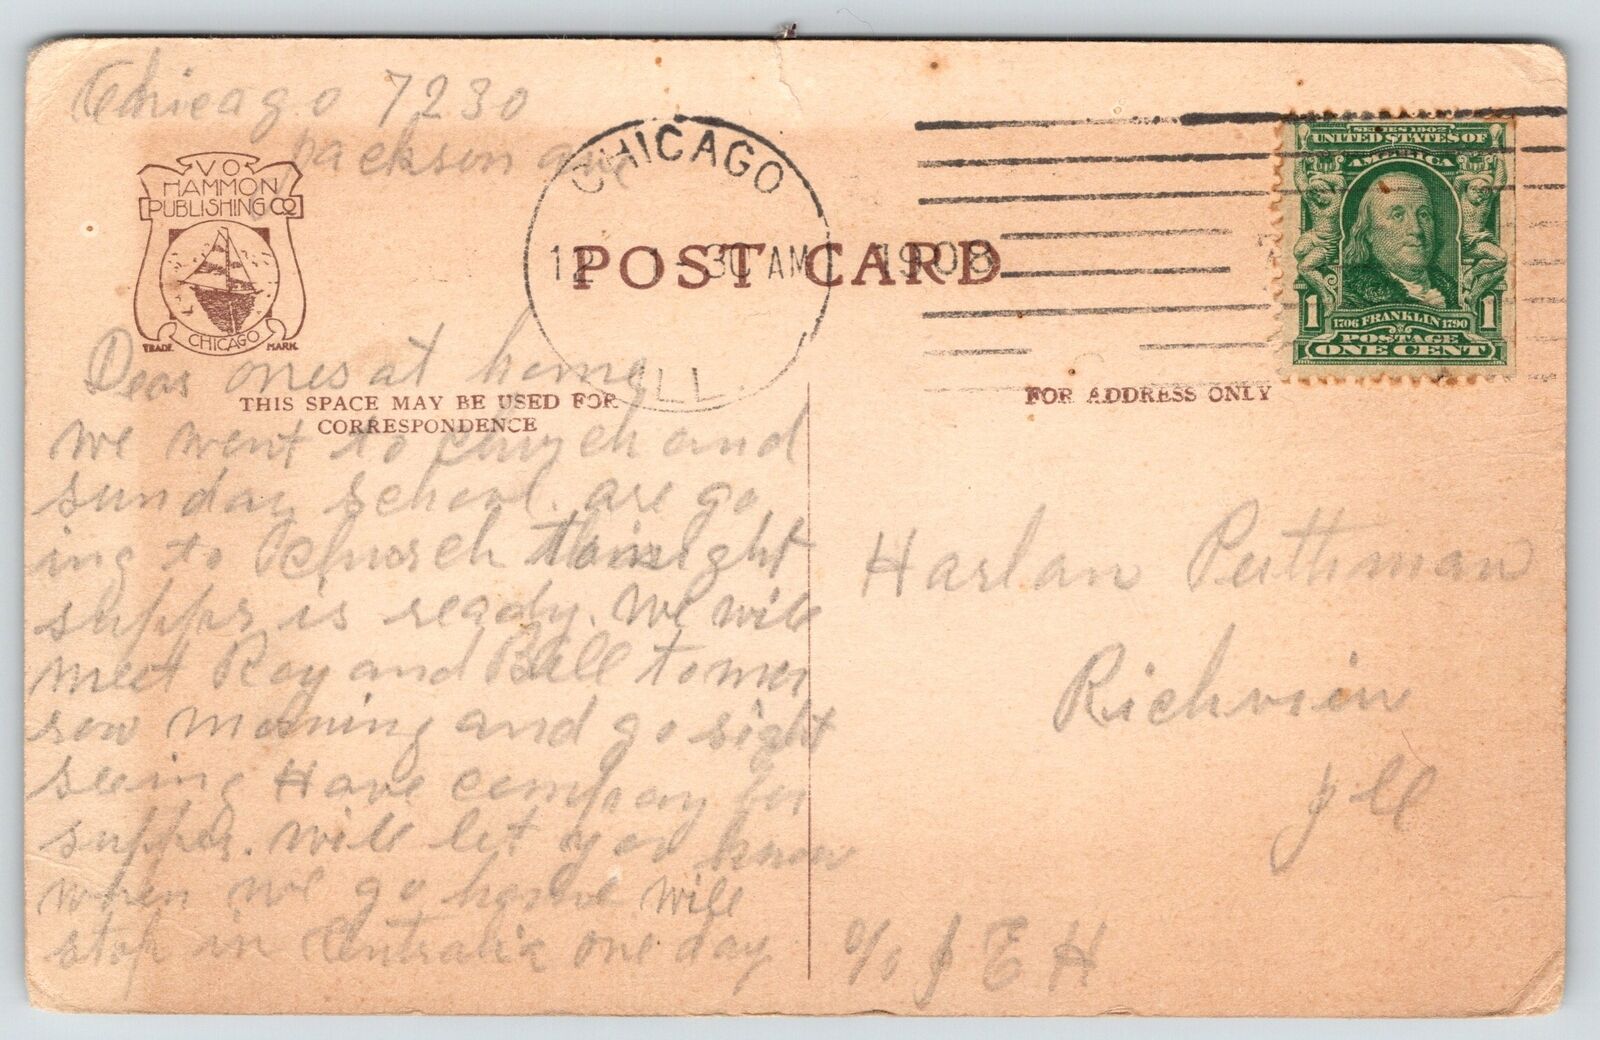 Chicago 7230
Jackson ave
V O
HAMMON
PUBLISHING CO
CHICAGO
TRADE MARK
CHICAGO
12 1-30 AM 1908
ILL.
POST CARD
SERIES 1902
UNITED STATES OF
AMERICA
1 1706 FRANKLIN 1790 1
POSTAGE
ONE CENT
THIS SPACE MAY BE USED FOR
CORRESPONDENCE
FOR ADDRESS ONLY
Dear ones at home
We went to church and
sunday school. are go
ing to church tonight
supper is ready. We will
meet Roy and Bill tomor
row morning and go sight
seeing Have company for
supper. Will let you know
when we go home Will
stop in Centralia one day
Harlan
Richview
Ill
c/o J E H